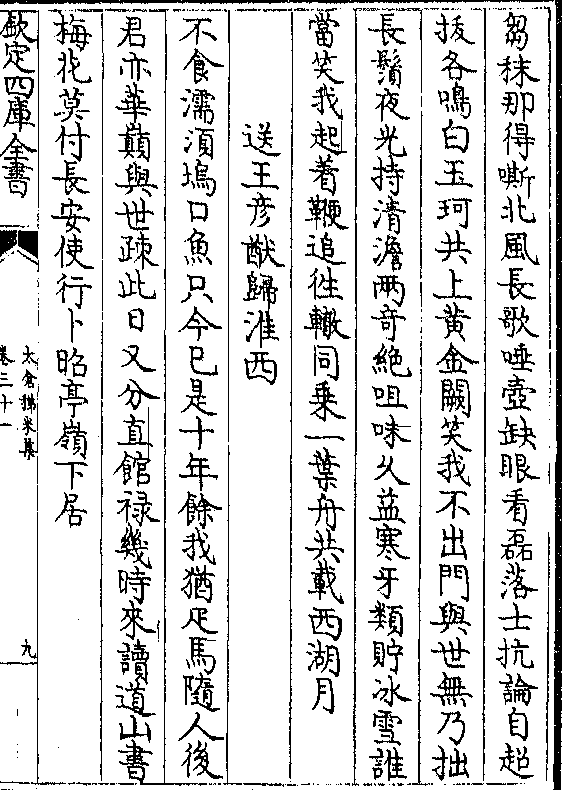 芻秣那得嘶北風長歌唾壺缺眼看磊落士抗論自超
拔各鳴白玉珂共上黄金闕笑我不出門與世無乃拙
長鬚夜光持清澹兩竒絶咀味久益寒牙類貯冰雪誰
當笑我起着鞭追徃轍同乗一葉舟共載西湖月
送王彦猷歸淮西
不食濡湏塢口魚只今已是十年餘我猶疋馬隨人後
君亦華巔與世疎此日又分直館禄幾時來讀道山書
梅花莫付長安使行卜昭亭嶺下居
欽定四庫全書
太倉稊米集
卷三十一
九